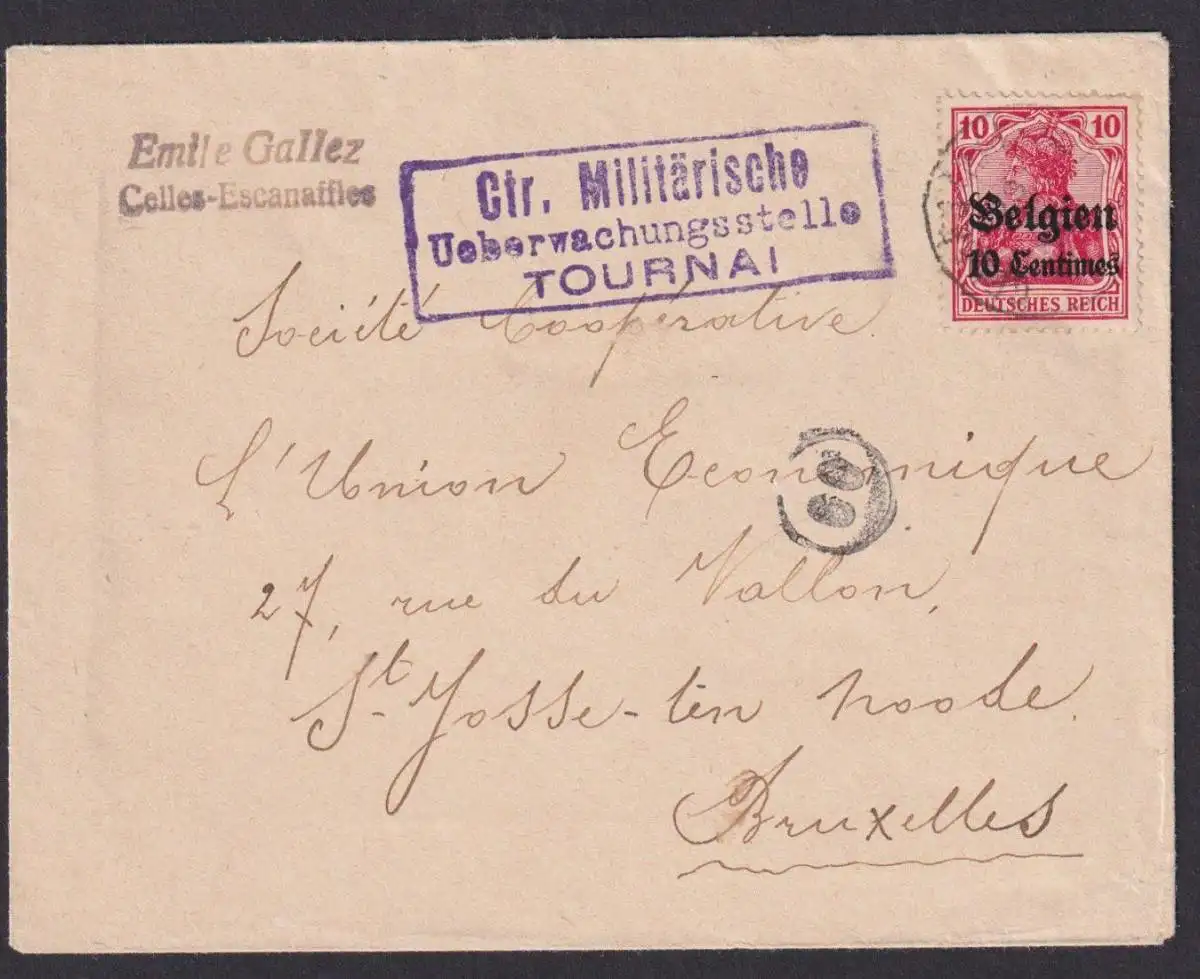 Emile Gallez
Celles-Escanaffles
Ctr. Militärische
Ueberwachungsstelle
TOURNAI
10 10
Belgien
10 Centimes
DEUTSCHES REICH
Société Coopérative
L'Union Economique
60
27, rue du Vallon,
St Josse-ten noode.
Bruxelles